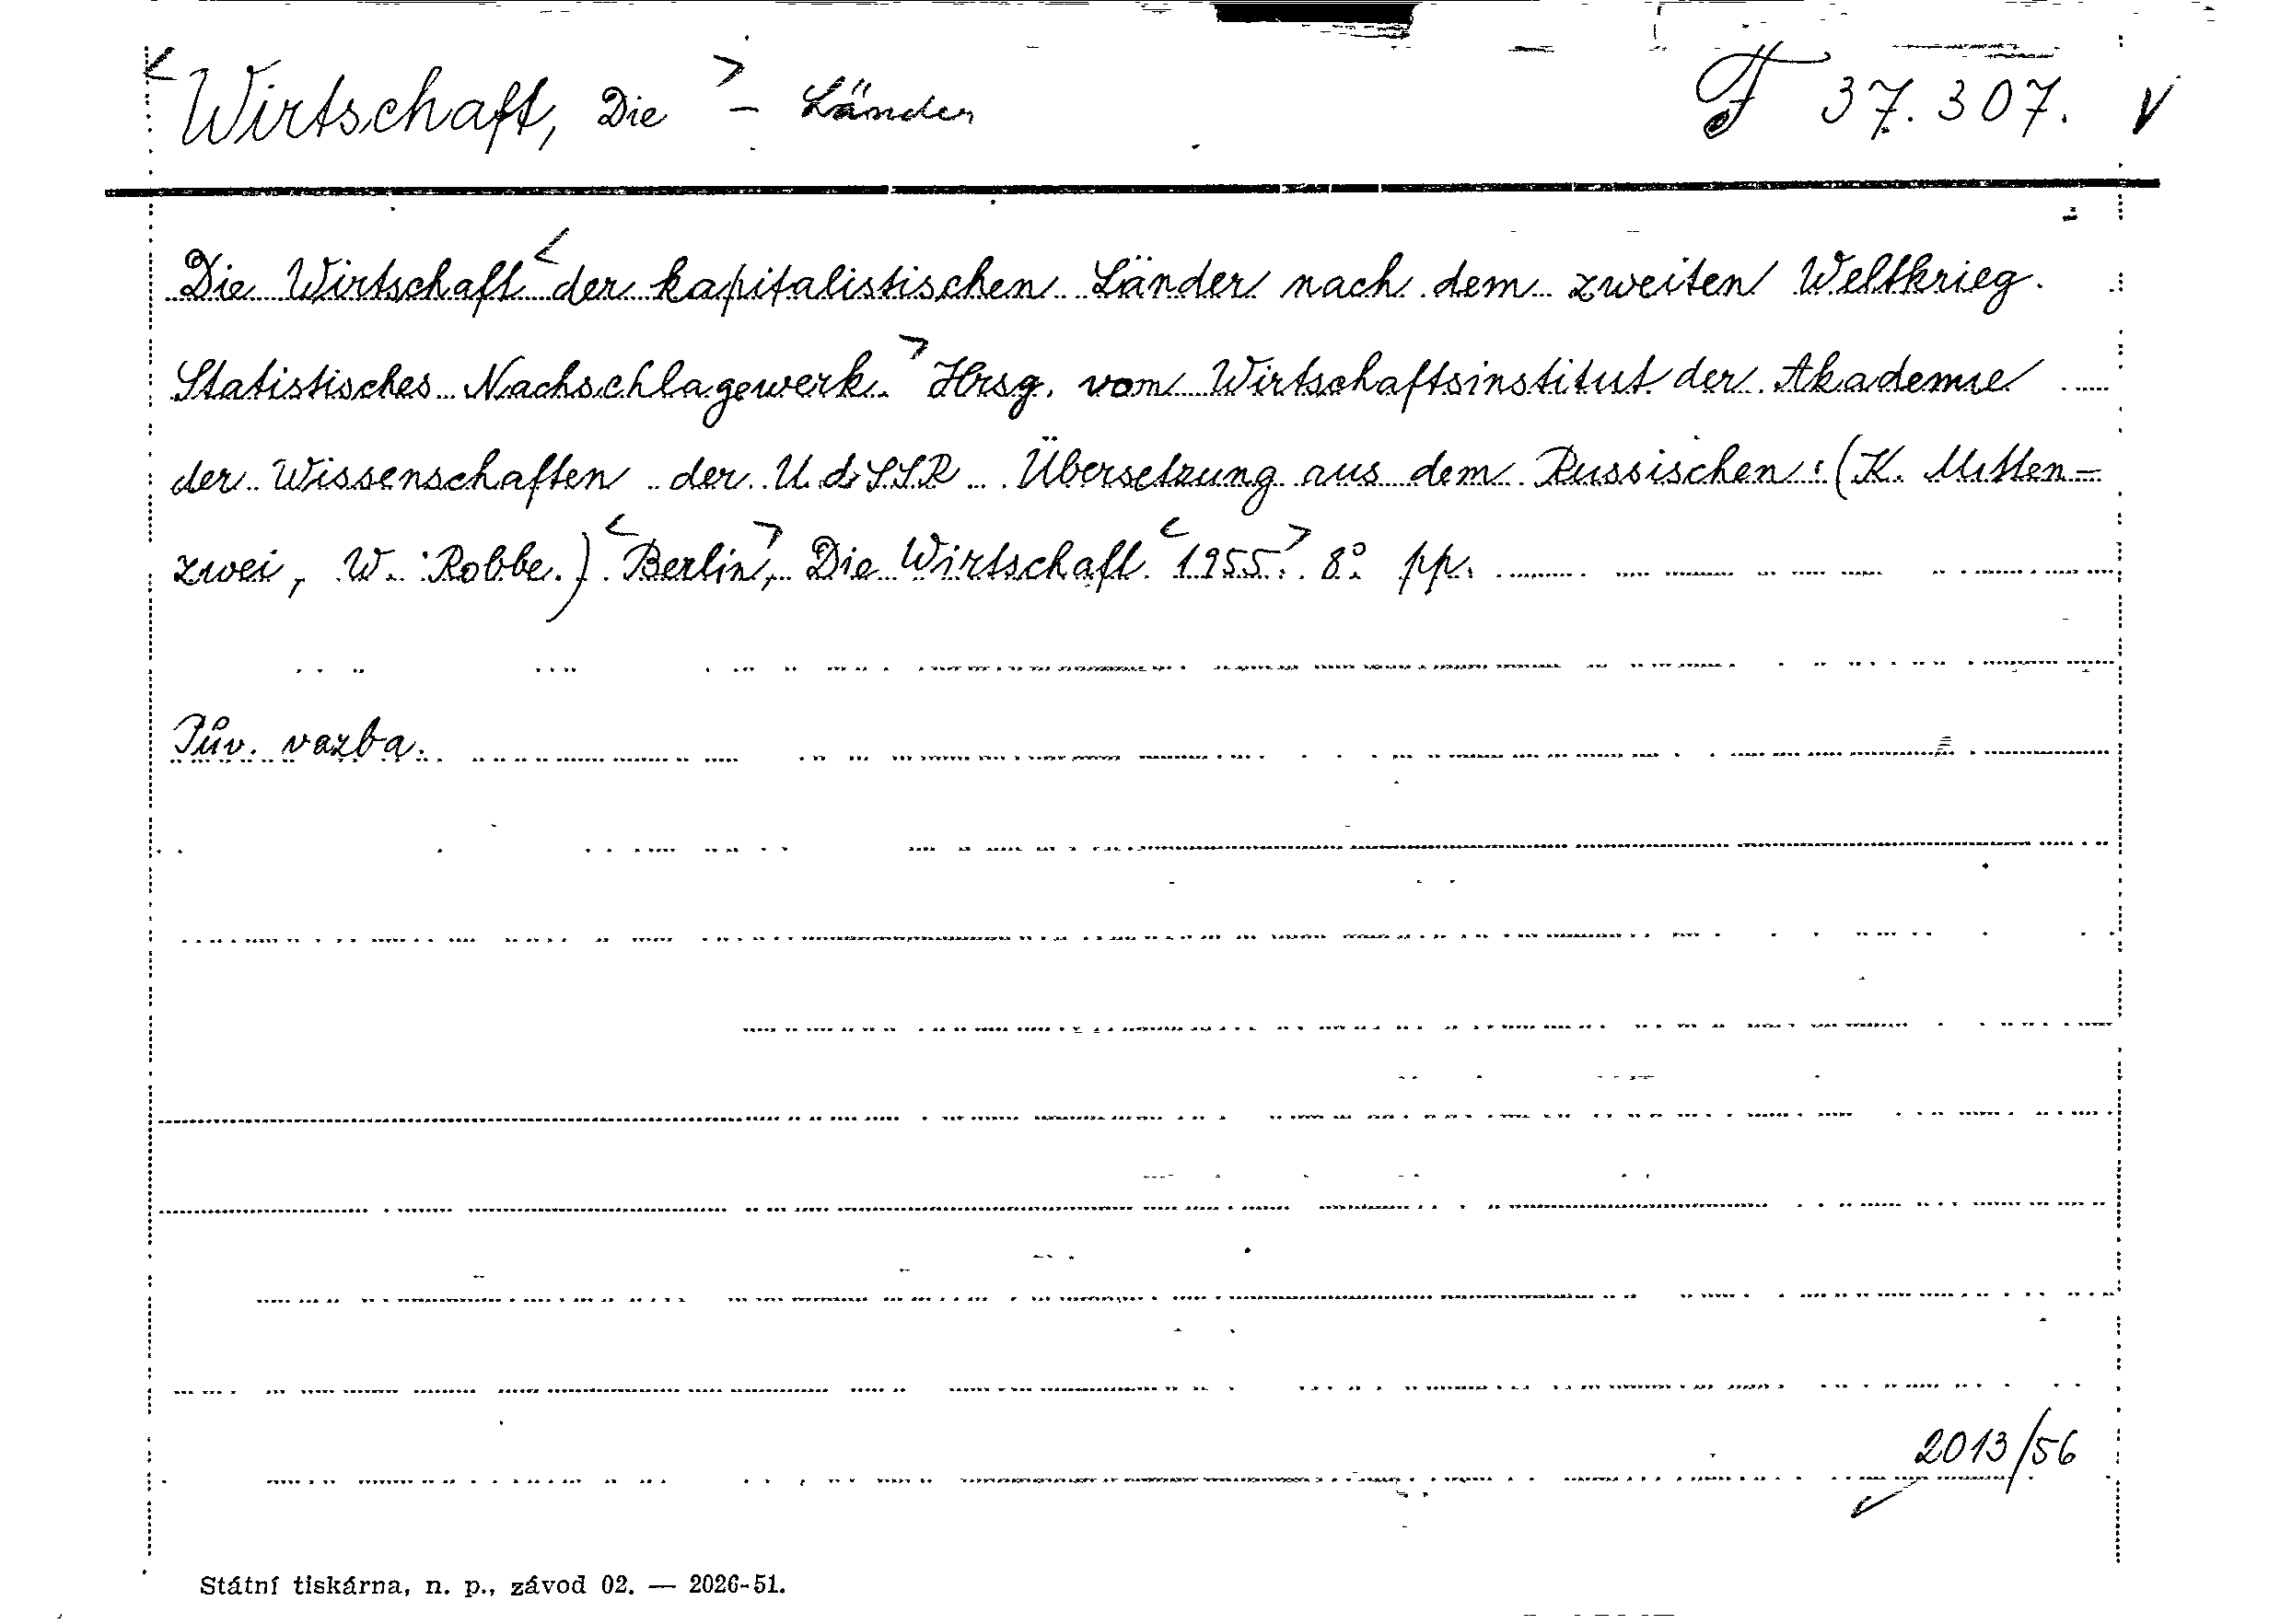 <Wirtschaft, Die> – Länder F 37.307. V
Die Wirtschaft <der kapitalistischen Länder nach dem zweiten Weltkrieg.
Statistisches Nachschlagewerk.> Hrsg. vom Wirtschaftsinstitut der Akademie
der Wissenschaften der U.d.SSR. Übersetzung aus dem Russischen: (K. Mitten=
zwei, W. Robbe.) <Berlin>, Die Wirtschaft <1955.> 8° pp.
Pův. vazba.
2013/56
Státní tiskárna, n. p., závod 02. — 2026-51.